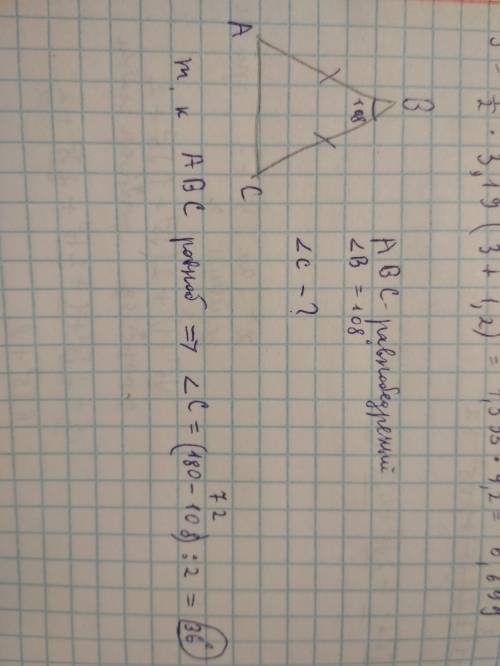 · 3,19 (3 + 1,2) =
B
108
A
C
ABC - равнобедренный
∠B = 108°
∠c - ?
т. к ABC равноб => ∠C = (180 - 108) : 2 = 36°
72